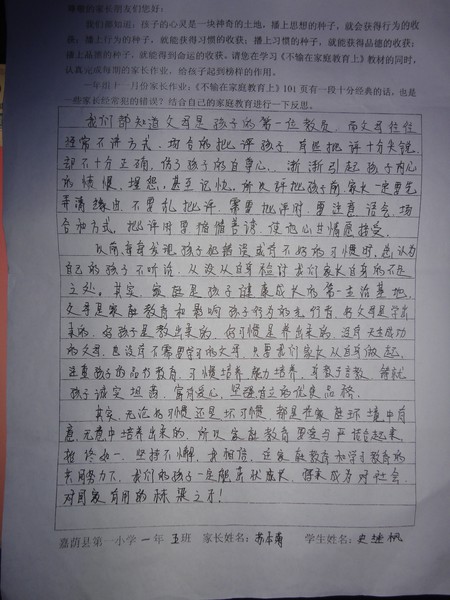 尊敬的家长朋友们您好：
我们都知道，孩子的心灵是一块神奇的土地，播上思想的种子，就会获得行为的收
获；播上行为的种子，就能获得习惯的收获；播上习惯的种子，就能获得品德的收获；
播上品德的种子，就能得到命运的收获。请您在学习《不输在家庭教育上》教材的同时，
认真完成每期的家长作业，给孩子起到榜样的作用。
一年组十一月份家长作业：《不输在家庭教育上》101页有一段十分经典的话，也是
一些家长经常犯的错误？结合自己的家庭教育进行一下反思。
我们都知道父母是孩子的第一位教员，而父母往往
经常不讲方式、场合的批评孩子，有些批评十分尖锐
却不十分正确，伤了孩子的自尊心，渐渐引起孩子内心
的愤恨、埋怨，甚至记仇，所以批评孩子前，家长一定要先
弄清缘由，不要乱批评，需要批评时，要注意语气、场
合和方式，批评时要循循善诱，使他心甘情愿接受。
以前，每每发现孩子犯错误或有不好的习惯时，总认为
自己的孩子不听话，从没从自身检讨我们家长自身的不足
之处。其实，家庭是孩子健康成长的第一生活基地，
父母是家庭教育和影响孩子行为的先行者，好父母是学出
来的，好孩子是教出来的，好习惯是养出来的，没有天生成功
的父母，也没有不需要学习的父母，只要我们家长从自身做起，
注重孩子的品行教育、习惯培养、能力培养，言教身教，锻就
孩子诚实坦荡、富有爱心、坚强自立的优良品格。
其实，无论好习惯还是坏习惯，都是在家庭环境中有
意无意中培养出来的，所以家庭教育要爱与严结合起来，
始终如一，坚持不懈，我相信，在家庭教育和学习教育的
共同努力下，我们的孩子一定能茁壮成长，将来成为对社会、
对国家有用的栋梁之才！
嘉荫县第一小学 一 年 五 班 家长姓名： 学生姓名：史